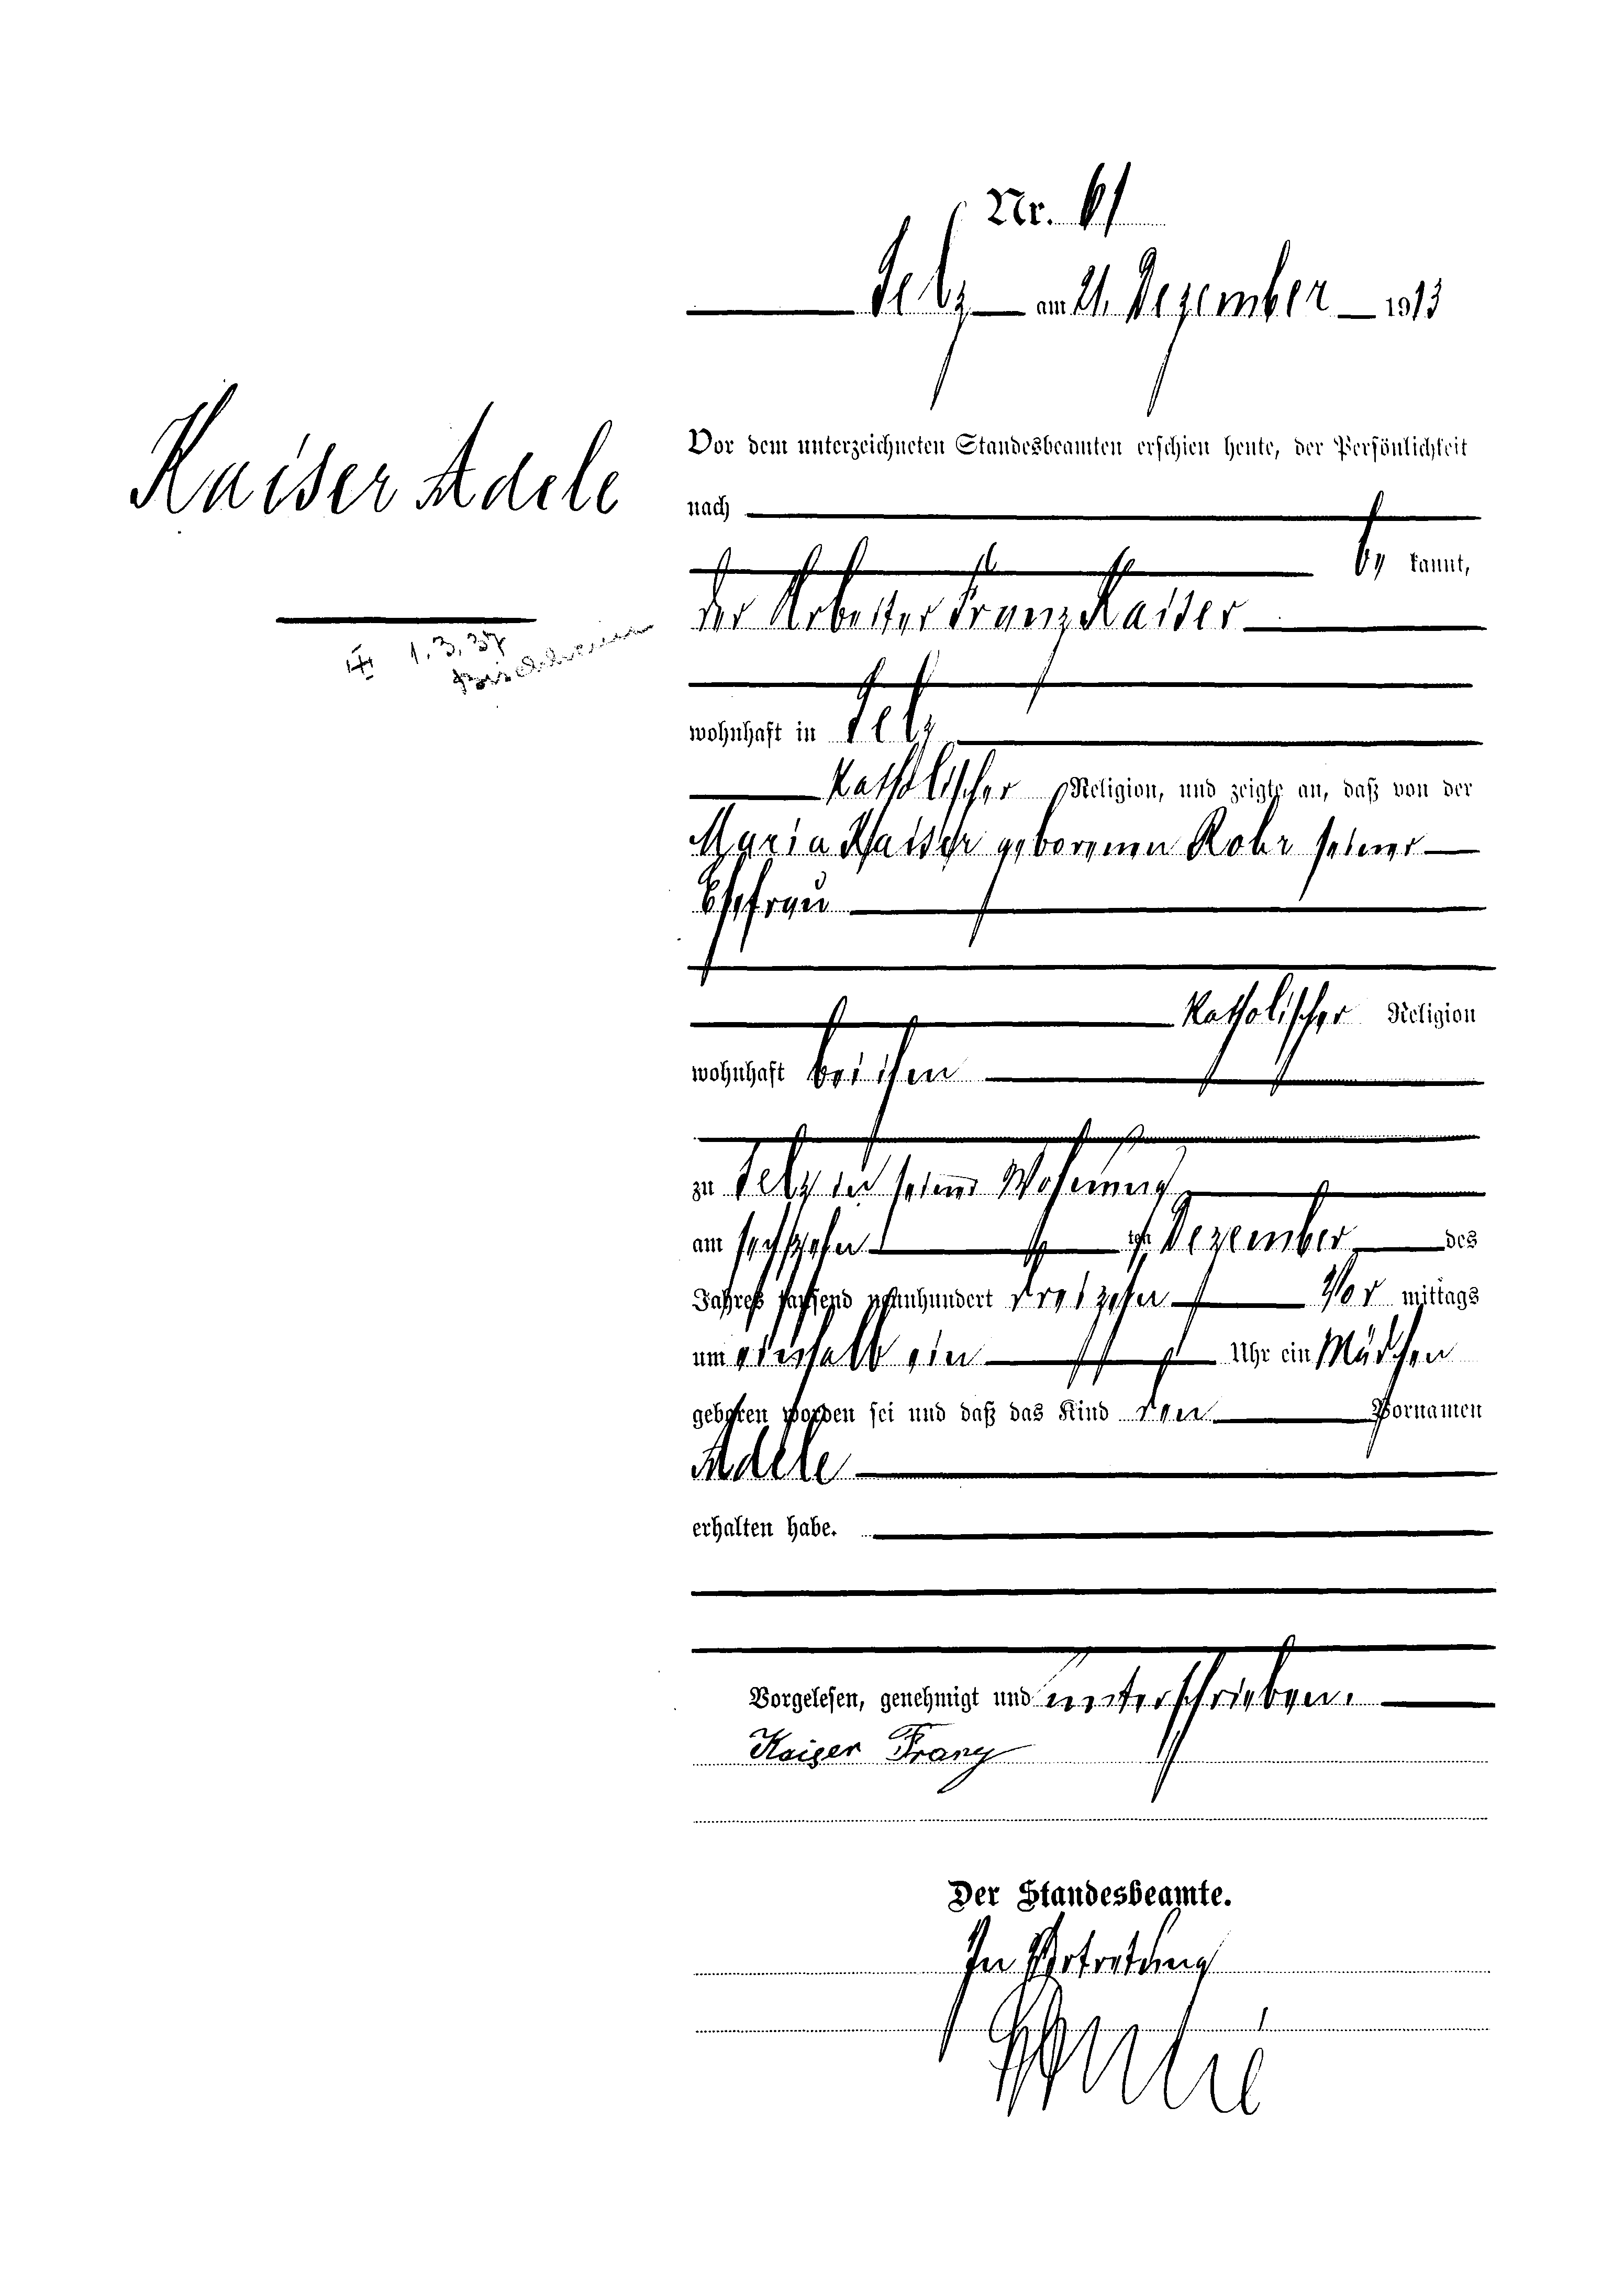 Nr. 61
Selz am 21. Dezember 1913
Kaiser Adele
1.3.37
Bischheim
Vor dem unterzeichneten Standesbeamten erschien heute, der Persönlichkeit
nach
be kannt,
der Arbeiter Franz Kaiser
wohnhaft in Selz
katholischer Religion, und zeigte an, daß von der
Maria Kaiser geborenen Rohr seiner
Ehefrau
katholischer Religion
wohnhaft bei ihm
zu Selz in seiner Wohnung
am sechszehn ten Dezember des
Jahres tausend neunhundert dreizehn Vor mittags
um einhalb ein Uhr ein Mädchen
geboren worden sei und daß das Kind den Vornamen
Adele
erhalten habe.
Vorgelesen, genehmigt und unterschrieben.
Kaiser Franz
Der Standesbeamte.
In Vertretung